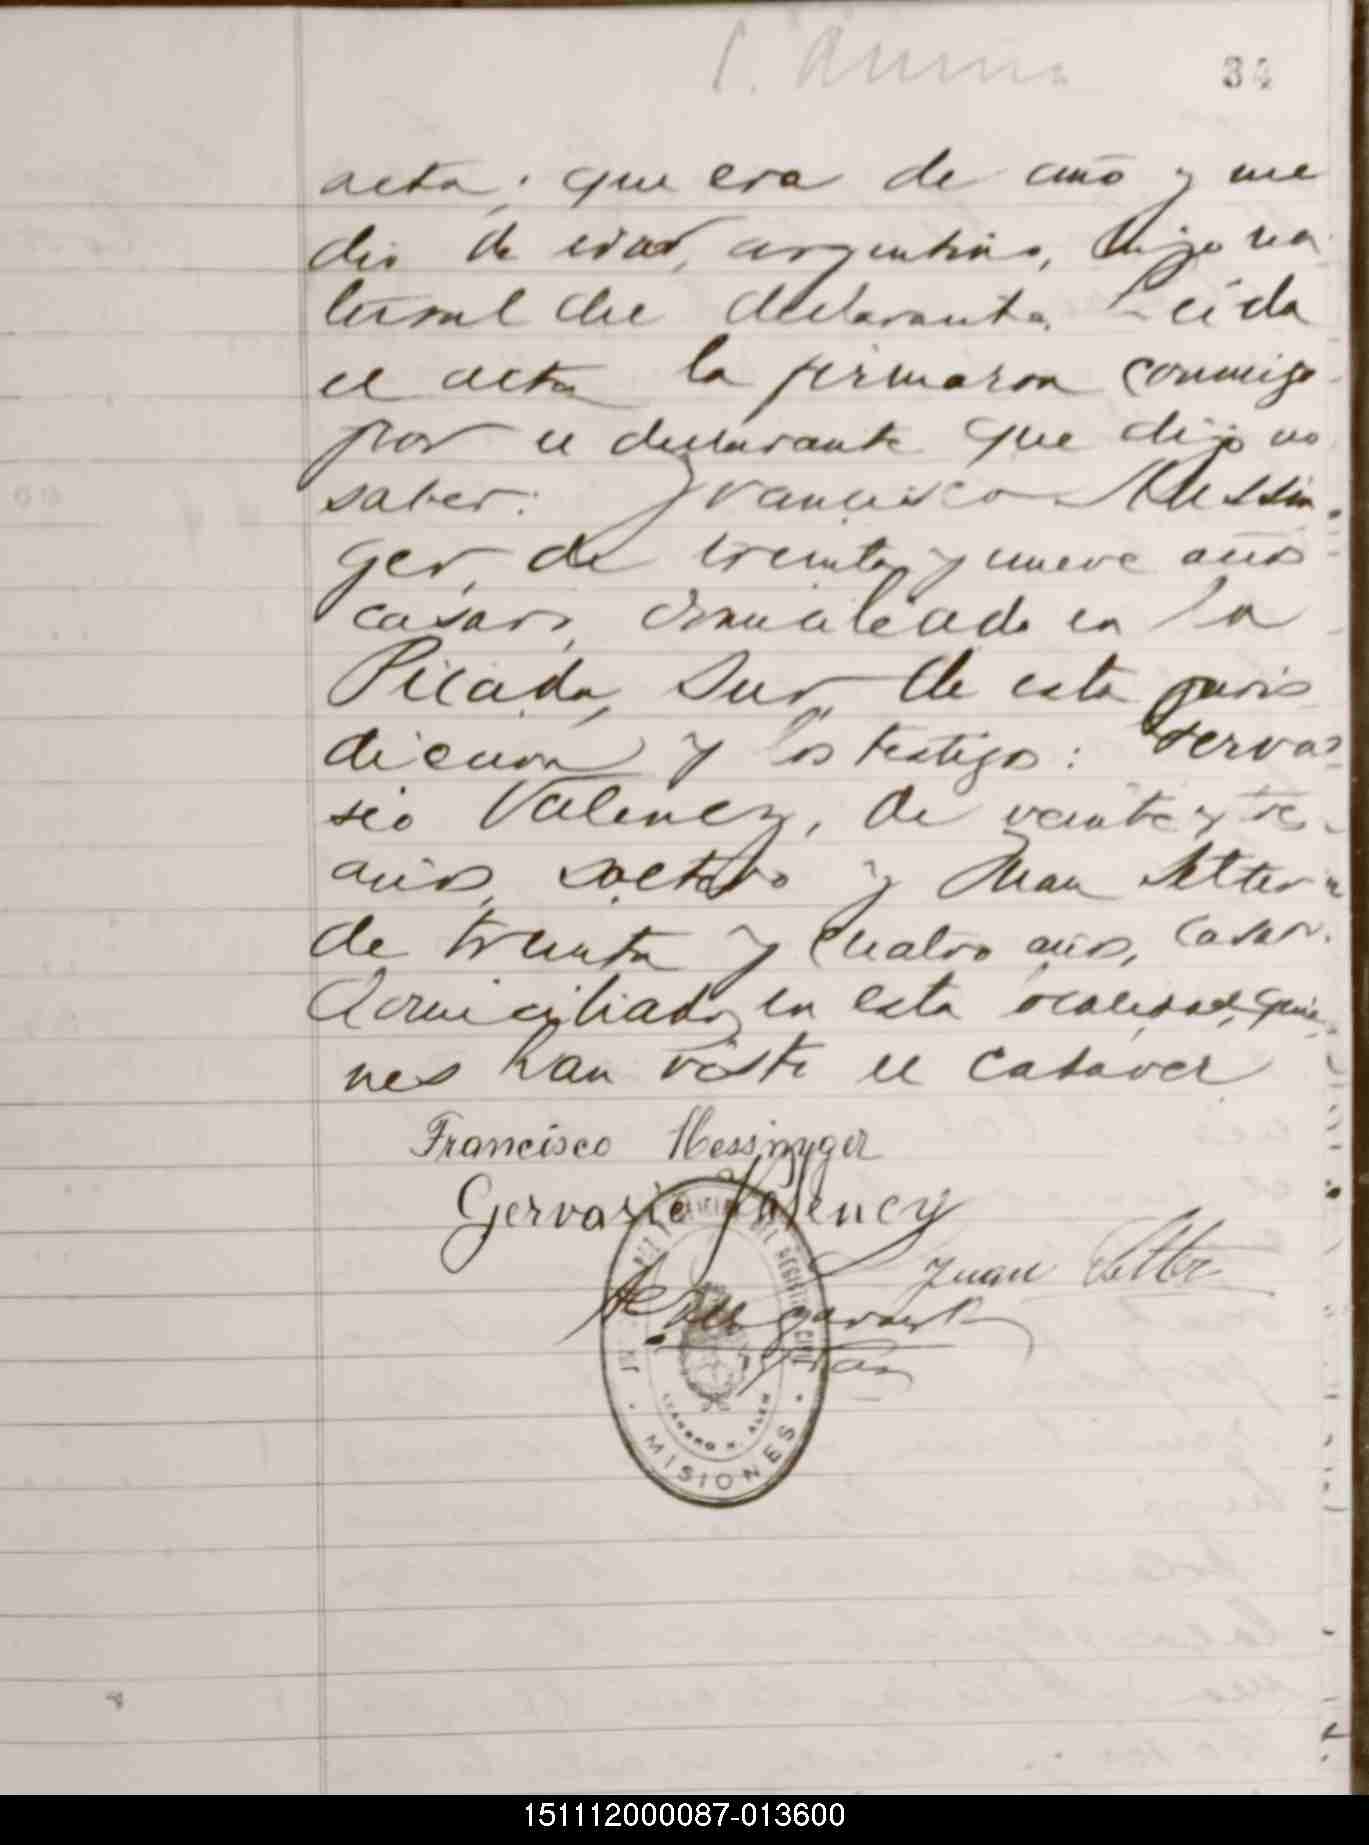 34
acta; que era de año y me
dio de edad, argentino, hijo na
tural del declarante. Leida
el acta la firmaron conmigo
por el declarante que dijo no
saber: Francisco Messin
ger, de treinta y nueve años
casado, domiciliado en la
Picada Sur, de esta juris
diccion y los testigos: Gerva
sio Valency, de veinte y
años, soltero y Juan
de treinta y cuatro años, casado
domiciliados en esta localidad, quie
nes han visto el cadaver
Francisco Messinger
Gervasio Valency
Juan
DEL REGISTRO CIVIL
LEANDRO N. ALEM
MISIONES
151112000087-013600